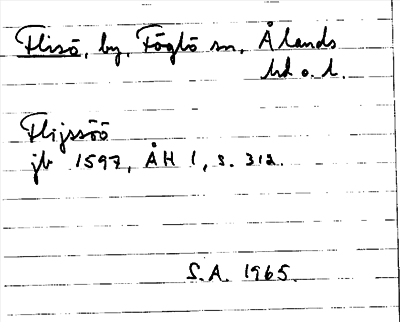 Flisö, by, Föglö sn, Ålands
hd o. l.
Flijssöö
jb 1597, ÅH 1, s. 312.
S.A. 1965.